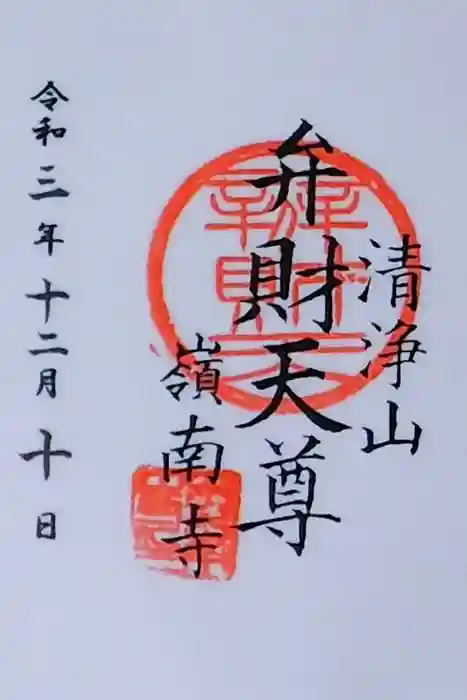 清浄山
弁財天尊
嶺南寺
令和三年十二月十日